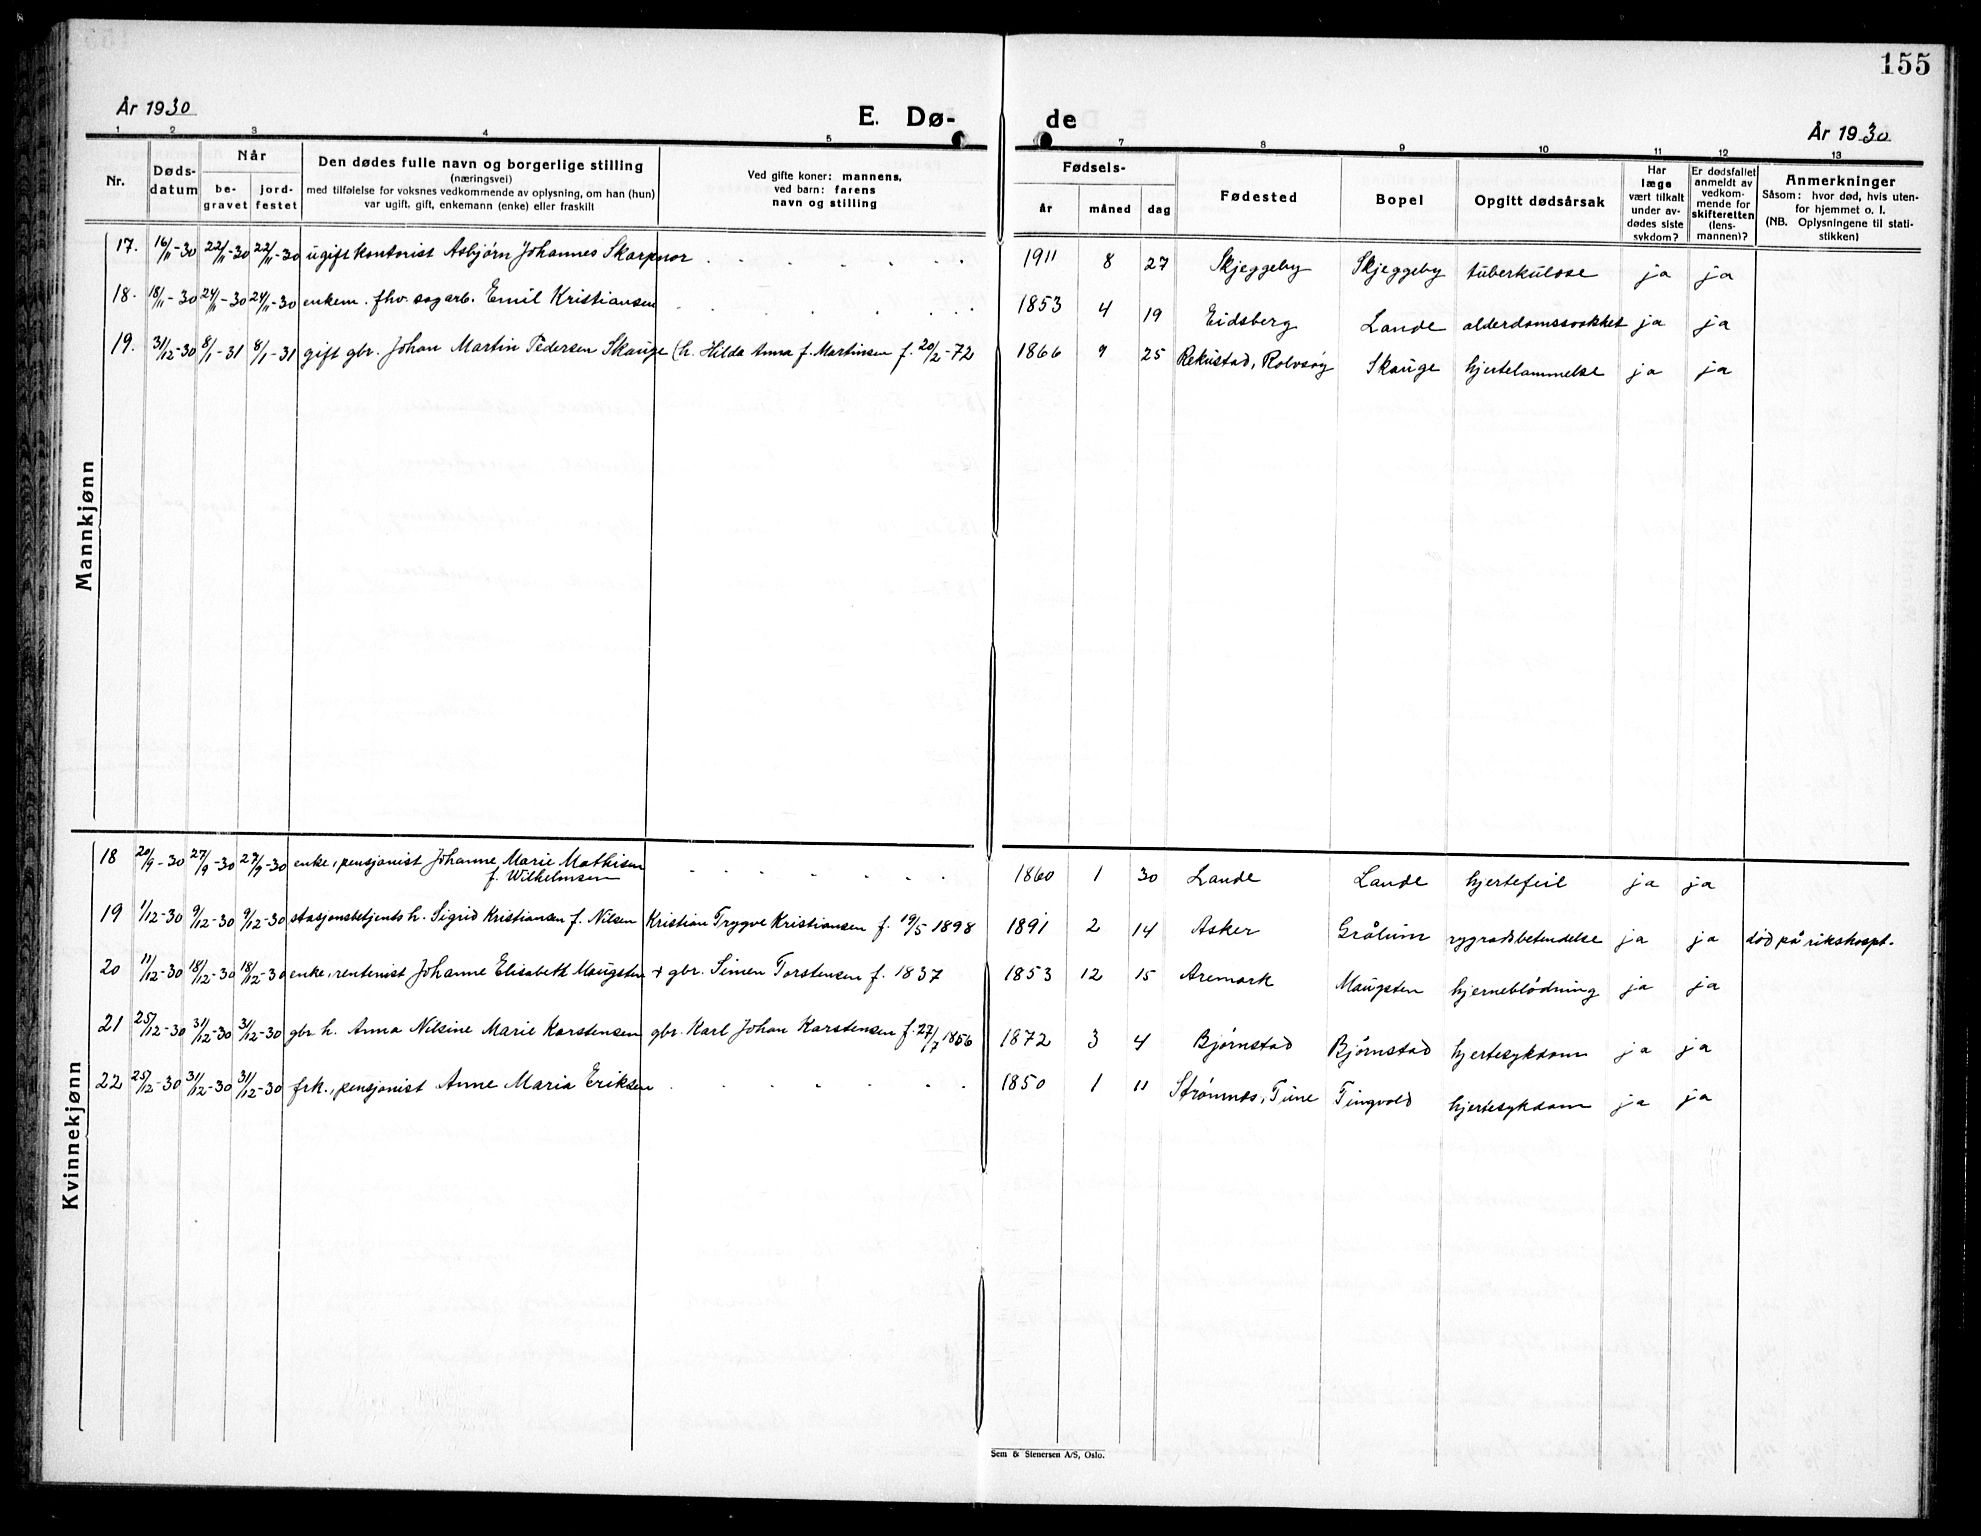 155
År 1930
E. Dø-
de
År 1930
1 2 3 4 5 7 8 9 10 11 12 13
Nr.
Døds-
datum
Når
be-
gravet
jord-
festet
Den dødes fulle navn og borgerlige stilling
(næringsvei)
med tilføielse for voksnes vedkommende av oplysning, om han (hun)
var ugift, gift, enkemann (enke) eller fraskilt
Ved gifte koner: mannens,
ved barn: farens
navn og stilling
Fødsels-
år
måned
dag
Fødested
Bopel
Opgitt dødsårsak
Har
læge
vært tilkalt
under av-
dødes siste
sykdom?
Er dødsfallet
anmeldt av
vedkom-
mende for
skifteretten
(lens-
mannen)?
Anmerkninger
Såsom: hvor død, hvis uten-
for hjemmet o. l.
(NB. Oplysningene til stati-
stikken)
Mannkjønn
17. 16/11-30 22/11-30 22/11-30 ugift kontorist Asbjørn Johannes Skarpnor . . . . . . 1911 8 27 Skjeggeby Skjeggeby tuberkulose ja ja
18. 18/11-30 24/11-30 24/11-30 enkem. fhv. sagarb. Emil Kristiansen . . . . . . 1853 4 19 Eidsberg Lande alderdomssvakhet ja ja
19. 31/12-30 8/1-31 8/1-31 gift gbr. Johan Martin Pedersen Skauge (h. Hilda Anna f. Martinsen f. 20/2-72 1866 9 25 Rekustad, Rolvsøy Skauge hjertelammelse ja ja
Kvinnekjønn
18 20/9-30 27/9-30 27/9-30 enke, pensjonist Johanne Marie Mathisen
f. Wilhelmsen . . . . . . . 1860 1 30 Lande Lande hjertefeil ja ja
19 1/12-30 9/12-30 9/12-30 stasjonsbetjents h. Sigrid Kristiansen f. Nilsen Kristian Trygve Kristiansen f. 19/5 1898 1891 2 14 Asker Grålum rygradsbetendelse ja ja død på rikshospt.
20 11/12-30 18/12-30 18/12-30 enke, rentenist Johanne Elisabeth Maugsten + gbr. Simen Torstensen f. 1837 1853 12 15 Aremark Maugsten hjerneblödning ja ja
21 25/12-30 31/12-30 31/12-30 gbr. h. Anna Nilsine Marie Karstensen gbr. Karl Johan Karstensen f. 27/7 1856 1872 3 4 Bjørnstad Bjørnstad hjertesykdom ja ja
22 25/12-30 31/12-30 31/12-30 frk., pensjonist Anne Maria Eriksen . . . . . . 1850 1 11 Strømnes, Tune Tingvold hjertesykdom ja ja
Sem & Stenersen A/S, Oslo.